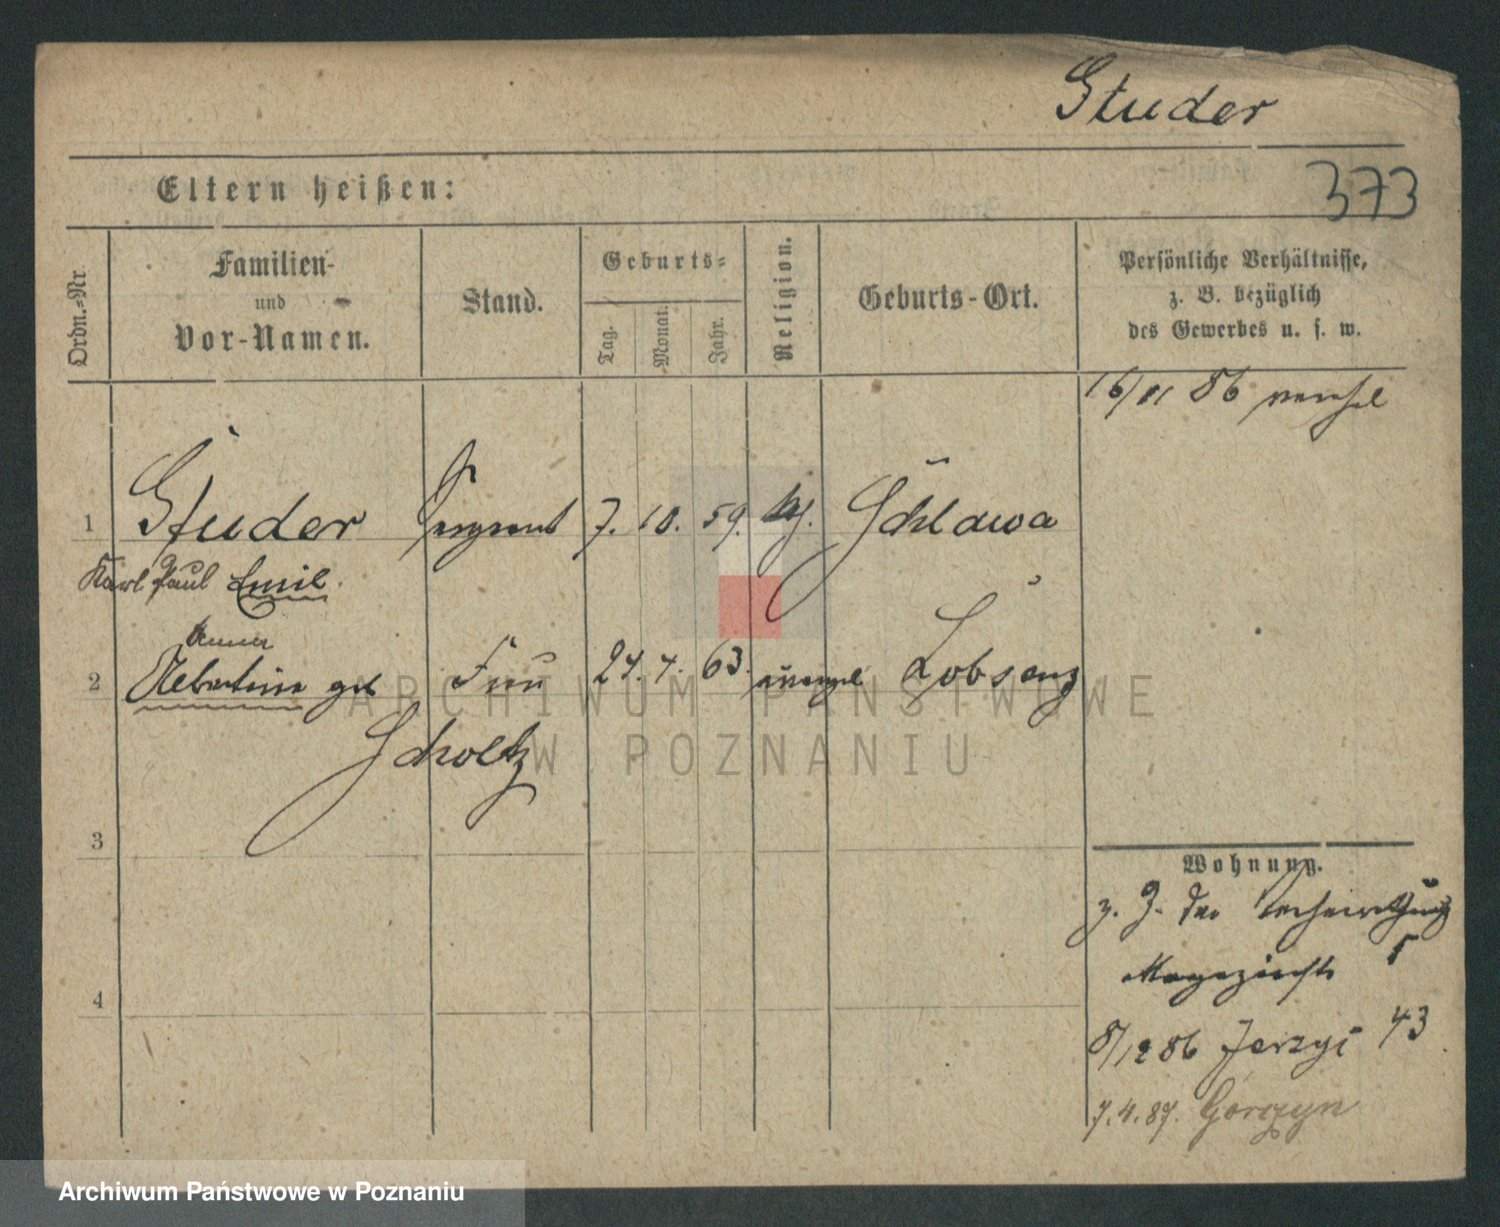 Studer
373
Eltern heißen:
Ordn.-Nr.
Familien-
und
Vor-Namen.
Stand.
Geburts-
Tag.
Monat.
Jahr.
Religion.
Geburts-Ort.
Persönliche Verhältnisse,
z. B. bezüglich
des Gewerbes u. s. w.
16/11 86
1 Studer Sergeant 7. 10. 59. Schlawa
Karl Paul Emil.
Anna
2 Albertine geb Frau 27. 7. 63. evangel Lobsens
Scholtz
3
4
Wohnung.
z. Z. der
5
8/12 86 Jerzyi 43
7.4.87. Gorczyn
ARCHIWUM PAŃSTWOWE
W POZNANIU
Archiwum Państwowe w Poznaniu